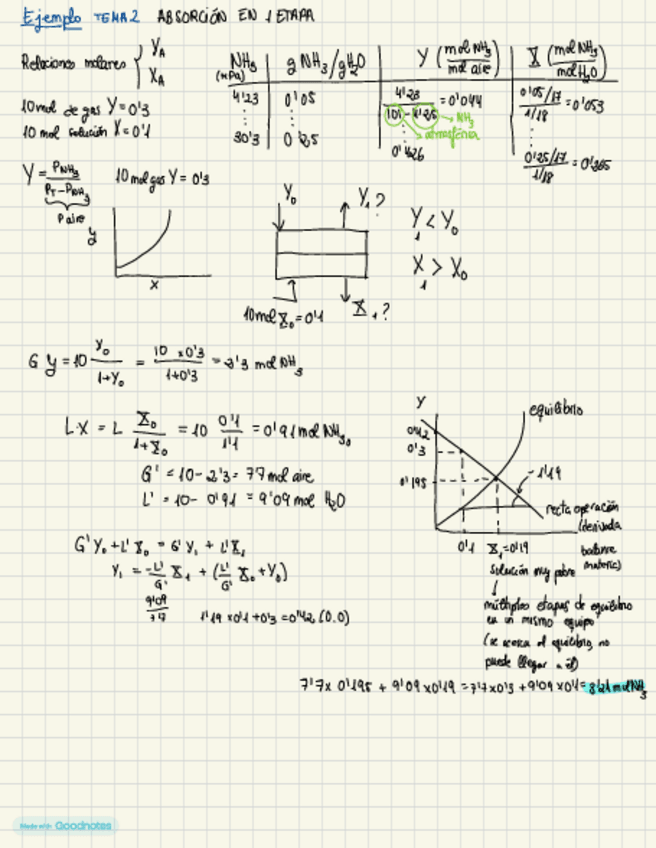 Ejemplo TEMA 2 ABSORCIÓN EN 1 ETAPA
Relaciones molares { Y_A
X_A
10 mol de gas Y=0'3
10 mol solución X=0'1
NH₃ (kPa) | g NH₃/gH₂O | Y (mol NH₃/mol aire) | X (mol NH₃/mol H₂O)
4'23 | 0'05 | 4'23/(101-4'23) = 0'044 | (0'05/17)/(1/18) = 0'053
NH₃
atmosférica
⋮ ⋮ ⋮ ⋮
30'3 | 0'25 | 0'426 | (0'25/17)/(1/18) = 0'265
Y = P_NH₃/(P_T-P_NH₃) 10 mol gas Y=0'3
P aire
y
x
Y₀ Y₁?
10 mol X₀=0'1 X₁?
Y₁ < Y₀
X₁ > X₀
G y = 10 Y₀/(1+Y₀) = (10 x 0'3)/(1+0'3) = 2'3 mol NH₃
L·X = L X₀/(1+X₀) = 10 0'1/1'1 = 0'91 mol NH₃
G' = 10-2'3 = 7'7 mol aire
L' = 10-0'91 = 9'09 mol H₂O
G'Y₀+L'X₀ = G'Y₁+L'X₁
Y₁ = -L'/G' X₁ + (L'/G' X₀+Y₀)
9'09/7'7 1'19 x0'1+0'3=0'42 (0.0)
Y
equilibrio
0'42
0'3
0'195
1'19
recta operación
(derivada
balance
materia)
0'1 X₁=0'19
solución muy pobre
↓
múltiples etapas de equilibrio
en un mismo equipo
(se acerca al equilibrio, no
puede llegar a él)
7'7x 0'195 + 9'09 x0'19 = 7'7 x0'3 +9'09 x0'1= 3'21 mol NH₃
Made with Goodnotes